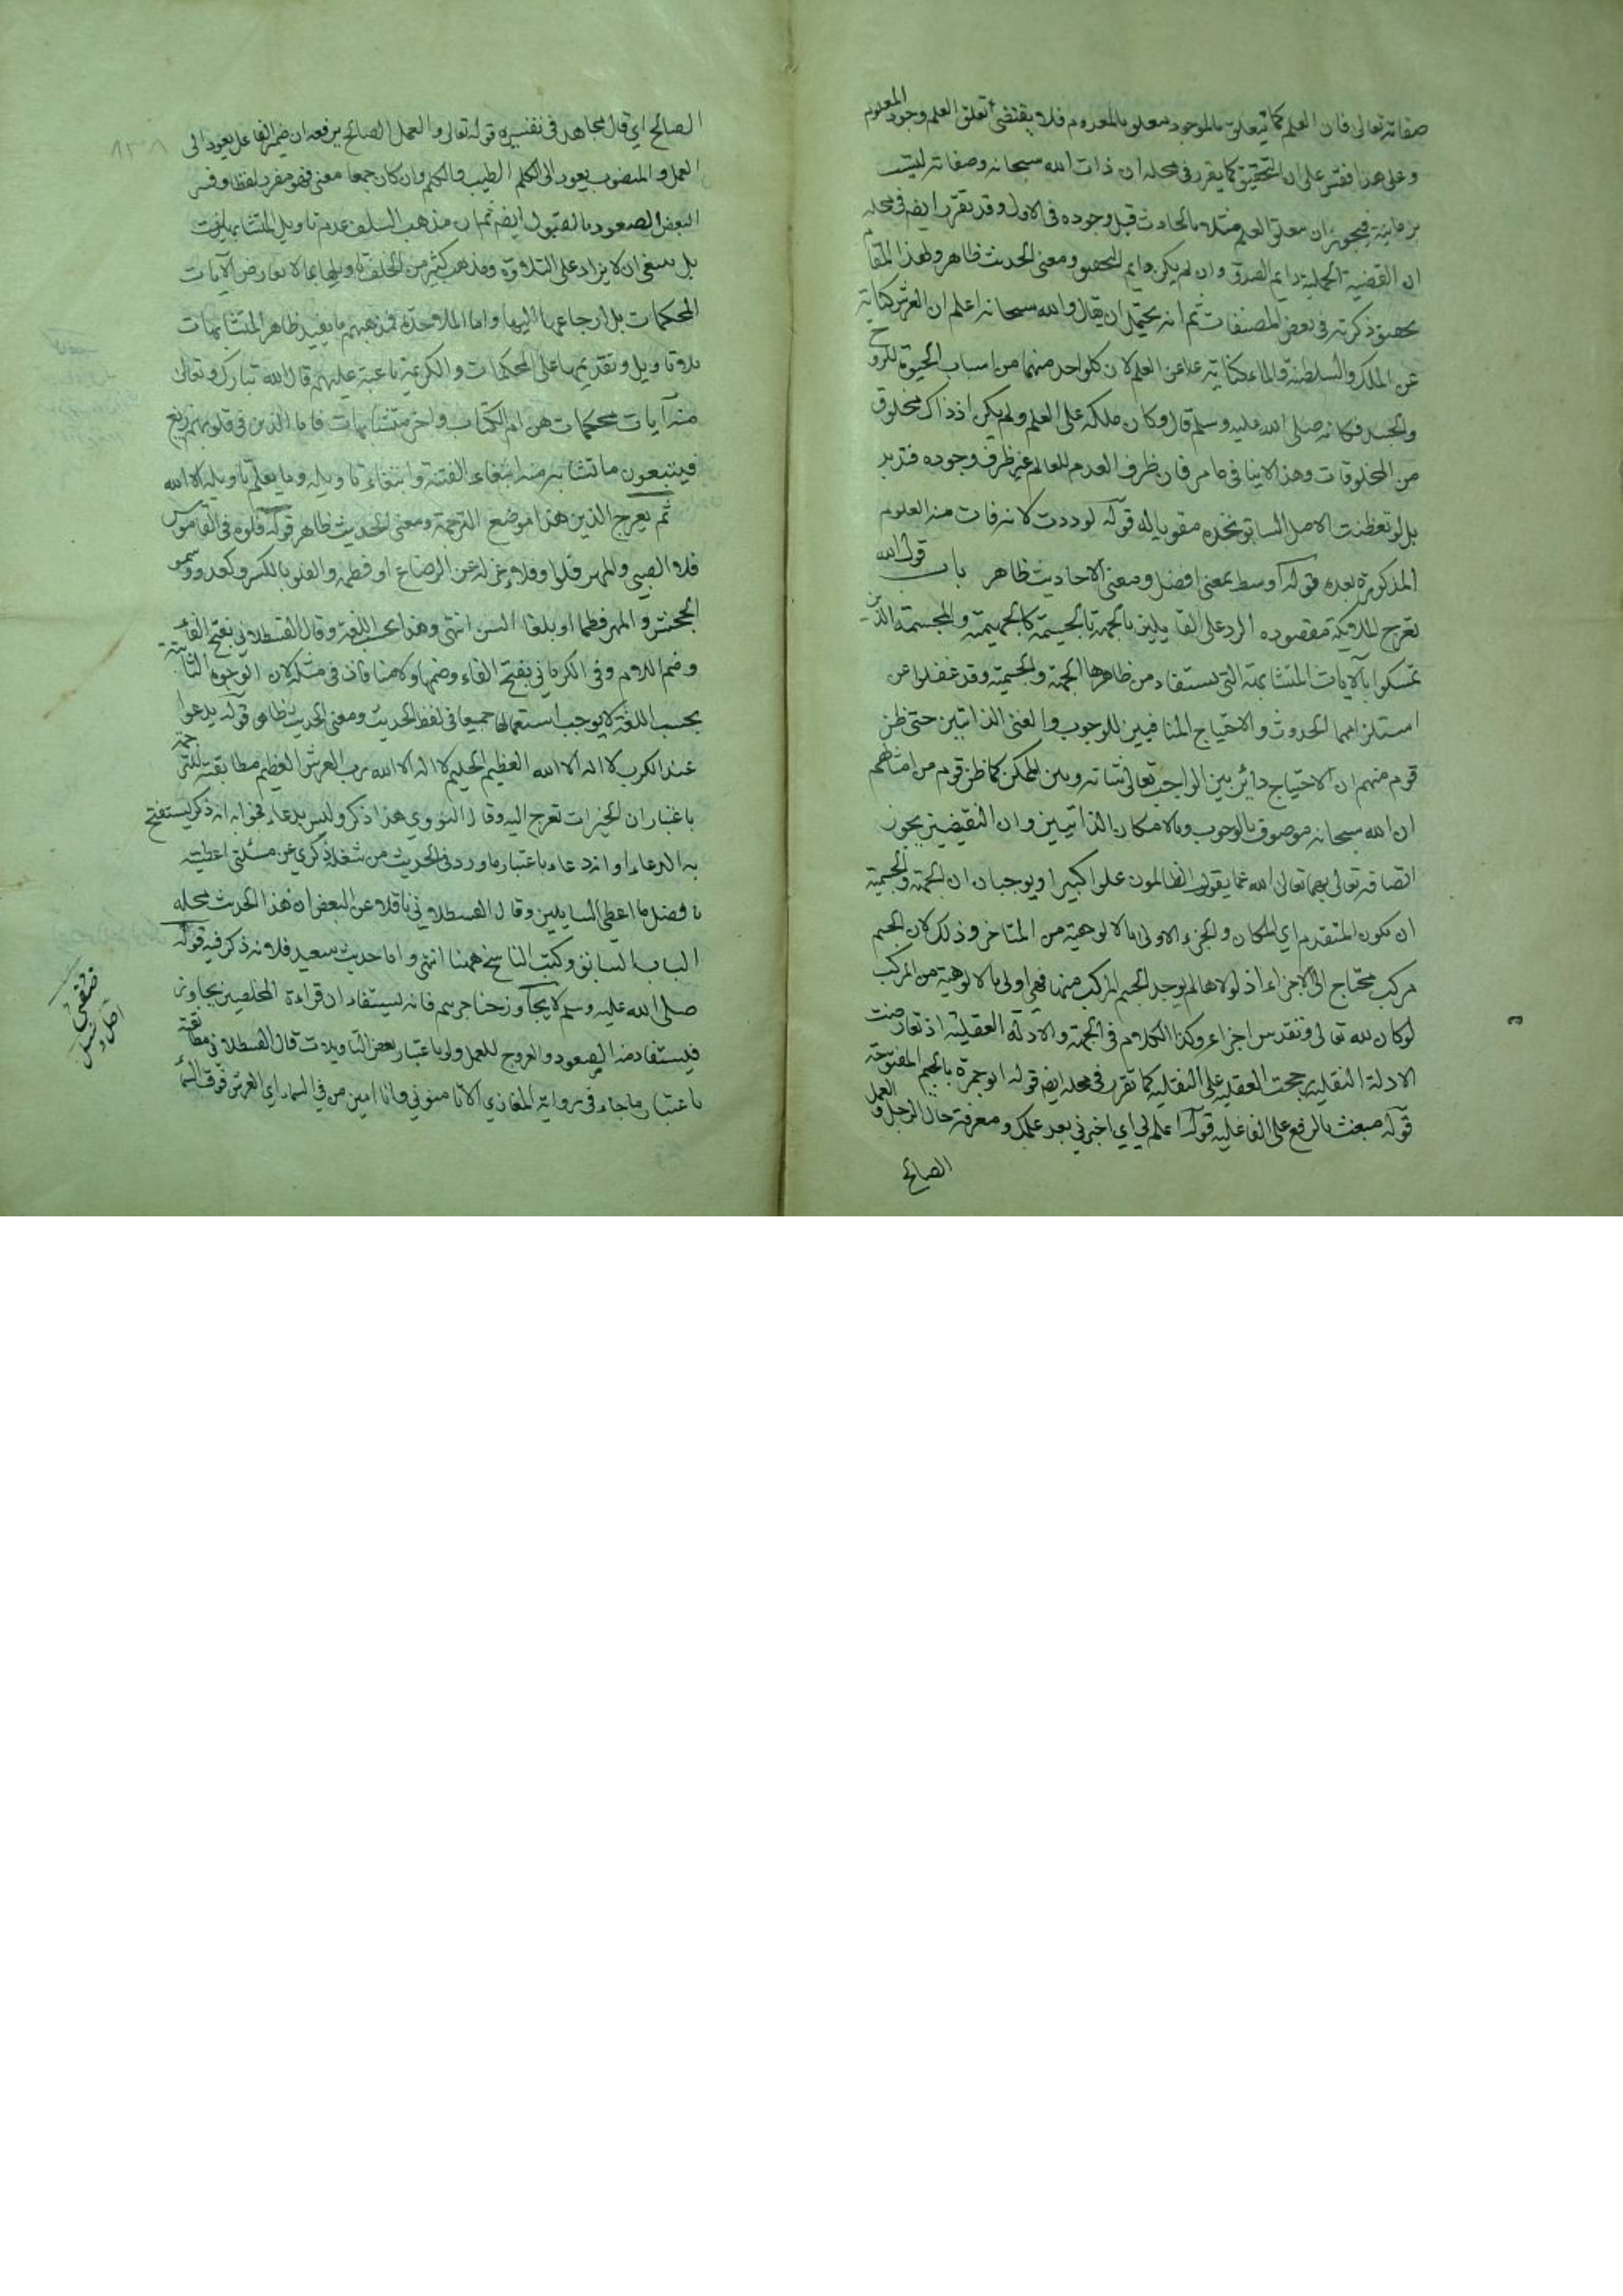 صفاته تعالى فان العلم كما يتعلق بالموجود يتعلق بالمعدوم فلا يقتضى تعلق العلم وجود المعلوم
وعلى هذا فقس على ان التحقيق كما يقرر في محله ان ذات الله سبحانه وصفاته ليست
زمانية فيجوز ان يتعلق العلم مثلا بالحادث قبل وجوده في الاول وقد تقرر ايضا في محله
ان القضية الحملية دايم الصدق وان لم يكن دايم التحقق ومعنى الحديث ظاهر ولهذا المقام
تحقيق ذكرته في بعض المصنفات ثم انه يحتمل ان يقال والله سبحانه اعلم ان العرش كناية
عن الملك والسلطنة والماء كناية عن العلم لان كلا واحد منهما من اسباب الحيوة للروح
والجسد فكانه صلى الله عليه وسلم قال وكان ملكه على العلم ولم يكن اذ ذاك مخلوق
من المخلوقات وهذا لا ينافي ما مر فان ظرف العدم للعالم غير ظرف وجوده فتدبر
بل لو تفطنت الاصل السابق تجده مقويا له قوله لوددت لانه فات منه العلوم
المذكورة بعده قوله اوسط بمعنى افضل ومعنى الاحاديث ظاهر باب قول الله
تعرج الملائكة مقصوده الرد على القايلين بالجهة بالجسمية كالجهمية والمجسمة الذين
تمسكوا بالآيات المتشابهة التي يستفاد من ظاهرها الجهة والجسمية وقد غفلوا عن
استلزامهما الحدوث والاحتياج المنافيين للوجوب والغنى الذاتيين حتى ظن
قوم منهم ان الاحتياج دائر بين الواجب تعالى شانه وبين الممكن كما ظن قوم من امثالهم
ان الله سبحانه موصوف بالوجوب وبالامكان الذاتيين وان النقيضين يجوز
اتصافه تعالى بهما تعالى الله عما يقول الظالمون علوا كبيرا ويوجبان ان الجهة والجسمية
ان يكون المتقدم اي المكان والجزء الاولى بالالوهية من المتاخر وذلك لان الجسم
مركب محتاج الى الاجزاء اذ لولاها لم يوجد الجسم المركب منها فهي اولى بالالوهية من المركب
لو كان لله تعالى وتقدس اجزاء وكذا الكلام في الجهة والادلة العقلية اذ تعارضت
الادلة النقلية رجحت العقلية على النقلية كما تقرر في محله ايضا قوله ابو جمرة بالجيم المفتوحة
قوله مبعث بالرفع على الفاعلية قوله اعلم لي اي اخبرني بعد علمك ومعرفة حال الرجل والعمل
الصالح
الصالح اي قال مجاهد في تفسيره قوله تعالى والعمل الصالح يرفعه ان ضمير الفاعل يعود الى
العمل والمنصوب يعود الى الكلم الطيب والكلم وان كان جمعا معنى فهو مفرد لفظا وفسر
البعض الصعود بالقبول ايضا ثم ان مذهب السلف عدم تاويل المتشابهات
بل ينبغي ان لا يزاد على التلاوة ومذهب كثير من الخلف تاويلها بما لا يعارض الآيات
المحكمات بل ارجاعها اليها واما الملاحدة فمذهبهم ما يفيد ظاهر المتشابهات
بلا تاويل وتقديمها على المحكمات والكريمة ناعية عليهم قال الله تبارك وتعالى
منه آيات محكمات هن ام الكتاب واخر متشابهات فاما الذين في قلوبهم زيغ
فيتبعون ما تشابه منه ابتغاء الفتنة وابتغاء تاويله وما يعلم تاويله الا الله
ثم يعرج الذين هذا موضع الترجمة ومعنى الحديث ظاهر قوله فلوه في القاموس
فلا الصبي والمهر فلوا وفلاء عزله عن الرضاع او فطمه والفلو بالكسر وكعدو وسمو
الجحش والمهر فطما او بلغا السن انتهى وهذا بحسب اللغة وقال القسطلاني بفتح الفاء
وضم اللام وفي الكرماني بفتح الفاء وضمها ولا منافاة في مثله لان الوجوه الثابتة
بحسب اللغة لا يوجب استعمالها جميعا في لفظ الحديث ومعنى الحديث ظاهر قوله يدعوا
عند الكرب لا اله الا الله العظيم الحليم لا اله الا الله رب العرش العظيم مطابقته للترجمة
باعتبار ان الخيرات تعرج اليه وقال النووي هذا ذكر وليس بدعاء فجوابه انه ذكر يستفتح
به الدعاء او انه دعاء باعتبار ما ورد في الحديث من شغله ذكري عن مسئلتي اعطيته
افضل ما اعطي السايلين وقال القسطلاني ناقلا عن البعض ان هذا الحديث محله
الباب السابق وكتب الناسخ ههنا انتهى واما حديث سعيد فلانه ذكر فيه قوله
صلى الله عليه وسلم لا يجاوز حناجرهم فانه يستفاد ان قراءة المخلصين يجاوز
فيستفاد منه الصعود والعروج للعمل ولو باعتبار بعض التاويلات قال القسطلاني مطابقته
باعتبار ما جاء في رواية المغازي الا تامنوني وانا امين من في السماء اي العرش فوق السماء